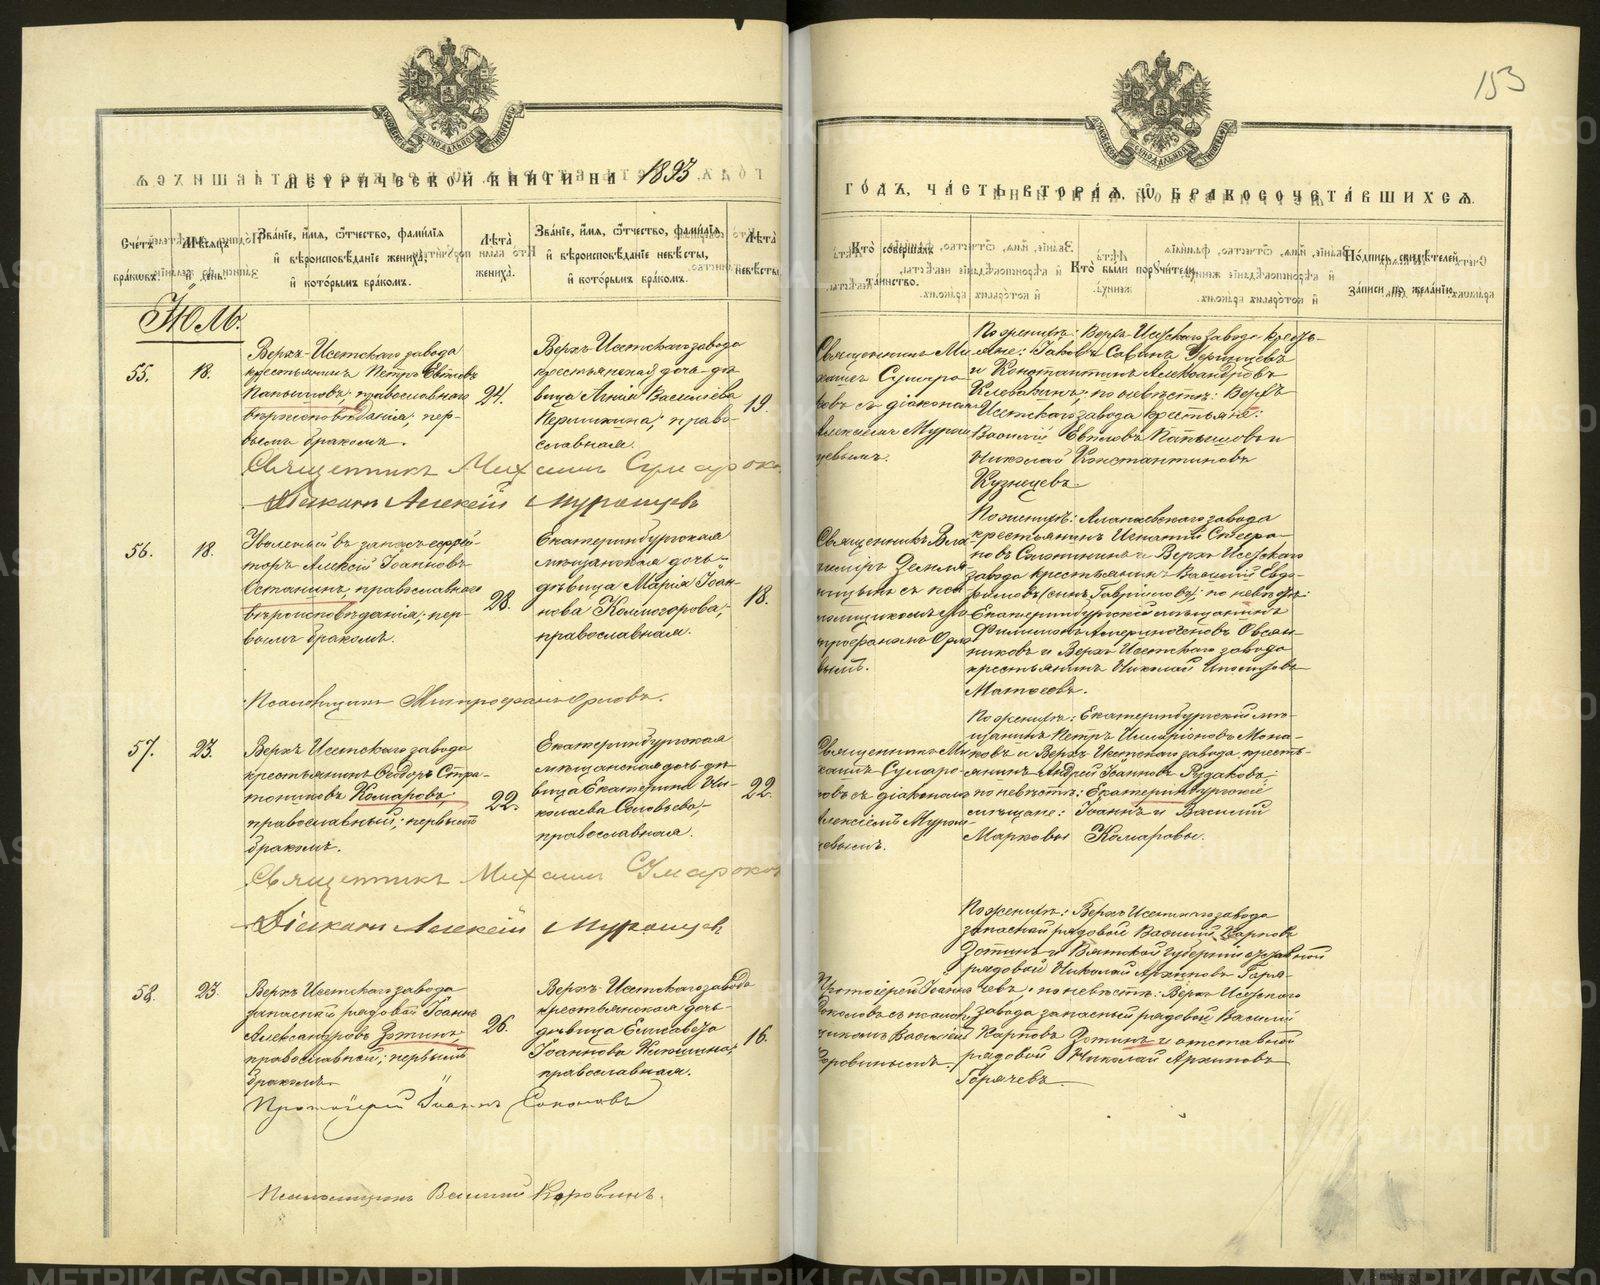 153
МЕТРИЧЕСКОЙ КНИГИ НА 1893
ГОДЪ, ЧАСТЬ ВТОРАЯ, Ѡ БРАКОСОЧЕТАВШИХСЯ.
Счетъ браковъ.
Мѣсяцъ и день.
Званіе, имя, ѿчество, фамилія
и вѣроисповѣданіе жениха,
и которымъ бракомъ.
Лѣта жениха.
Званіе, имя, ѿчество, фамилія
и вѣроисповѣданіе невѣсты,
и которымъ бракомъ.
Лѣта невѣсты.
Кто совершалъ таинство.
Кто были поручители.
Подпись свидѣтелей записи по желанію.
Июль.
55.
18.
Верхъ-Исетскаго завода
крестьянинъ Петръ
православнаго
вѣроисповѣданія; пер-
вымъ бракомъ.
24.
Верхъ-Исетскаго завода
крестьянская дочь дѣ-
вица Васильева
право-
славная.
19.
Священникъ Ми-
хаилъ Сумаро-
ковъ съ діакономъ
Алексіемъ Мурои
По женихѣ: Верхъ-Исетскаго завода кресть-
яне: Іаковъ Саввинъ
и Константинъ Александровъ
по невѣстѣ: Верхъ
Исетскаго завода крестьяне:
Василій
Николай Константиновъ
Кузнецовъ.
Священникъ Михаилъ Сумароко
Діаконъ Алексій
56.
18.
Уволенный въ запасъ ефрей-
торъ Алексій Іоанновъ
Останинъ, православнаго
вѣроисповѣданія; пер-
вымъ бракомъ.
28.
Екатеринбургская
мѣщанская дочь-
дѣвица Марія Іоан-
нова Колмогорова;
православная.
18.
Священникъ Вла
димиръ Земля
ницынъ съ пса
ломщикомъ Ми
трофаномъ Орло
вымъ.
По женихѣ: Алапаевскаго завода
крестьянинъ Игнатій Стефа-
новъ и Верхъ Исетскаго
завода крестьянинъ Василій Евдо-
кимовъ (сынъ Гавриловъ); по невѣстѣ:
Екатеринбургскій мѣщанинъ
Филимонъ Овсян-
никовъ и Верхъ Исетскаго завода
крестьянинъ Николай Ипполитовъ
Матосовъ.
Псаломщикъ Митрофанъ Орловъ.
57.
23.
Верхъ Исетскаго завода
крестьянинъ Ѳеодоръ Стра-
тониковъ Комаровъ;
православный; первымъ
бракомъ.
22.
Екатеринбургская
мѣщанская дочь дѣ-
вица Екатерина Ни-
колаева Соловьева;
православная.
22.
Священникъ Ми
хаилъ Сумаро
ковъ съ діакономъ
Алексіемъ Муром
По женихѣ: Екатеринбургскій мѣ-
щанинъ Петръ Илларіоновъ Мона-
ковъ и Верхъ Исетскаго завода кресть-
янинъ Андрей Іоанновъ Рудаковъ;
по невѣстѣ: Екатеринбургскіе
мѣщане: Іоаннъ и Василій
Марковы Комаровы.
Священникъ Михаилъ Сумароков
Діаконъ Алексій
58.
23.
Верхъ Исетскаго завода
запасный рядовой Іоаннъ
Александровъ Зотинъ;
православный; первымъ
бракомъ.
26.
Верхъ-Исетскаго завода
крестьянская дочь-
дѣвица Елисавета
Іоаннова
православная.
16.
Протоіерей Іоаннъ
Соколовъ съ псалом
щикомъ Василіемъ
Коровинымъ.
По женихѣ: Верхъ Исетскаго завода
запасный рядовой Василій Карповъ
Зотинъ и Вятской губерніи отставной
рядовой Николай Архиповъ Горя-
чевъ; по невѣстѣ: Верхъ Исетскаго
завода запасный рядовой Василій
Карповъ Зотинъ и отставной
рядовой Николай Архиповъ
Горячевъ.
Протоіерей Іоаннъ Соколовъ
Псаломщикъ Василий Коровинъ.
METRIKI.GASO-URAL.RU